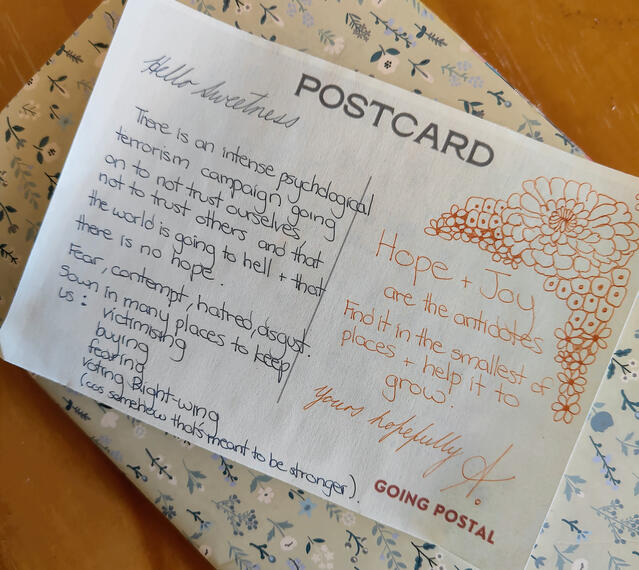 POSTCARD
Hello Sweetness
There is an intense psychological
terrorism campaign going
on to not trust ourselves,
not to trust others and that
the world is going to hell + that
there is no hope.
Fear, contempt, hatred, disgust.
Sown in many places to keep
us :
victimising
buying
fearing
voting Right-wing
(cos somehow that's meant to be stronger).
Hope + Joy
are the antidotes
Find it in the smallest of
places + help it to
grow.
Yours hopefully A.
GOING POSTAL